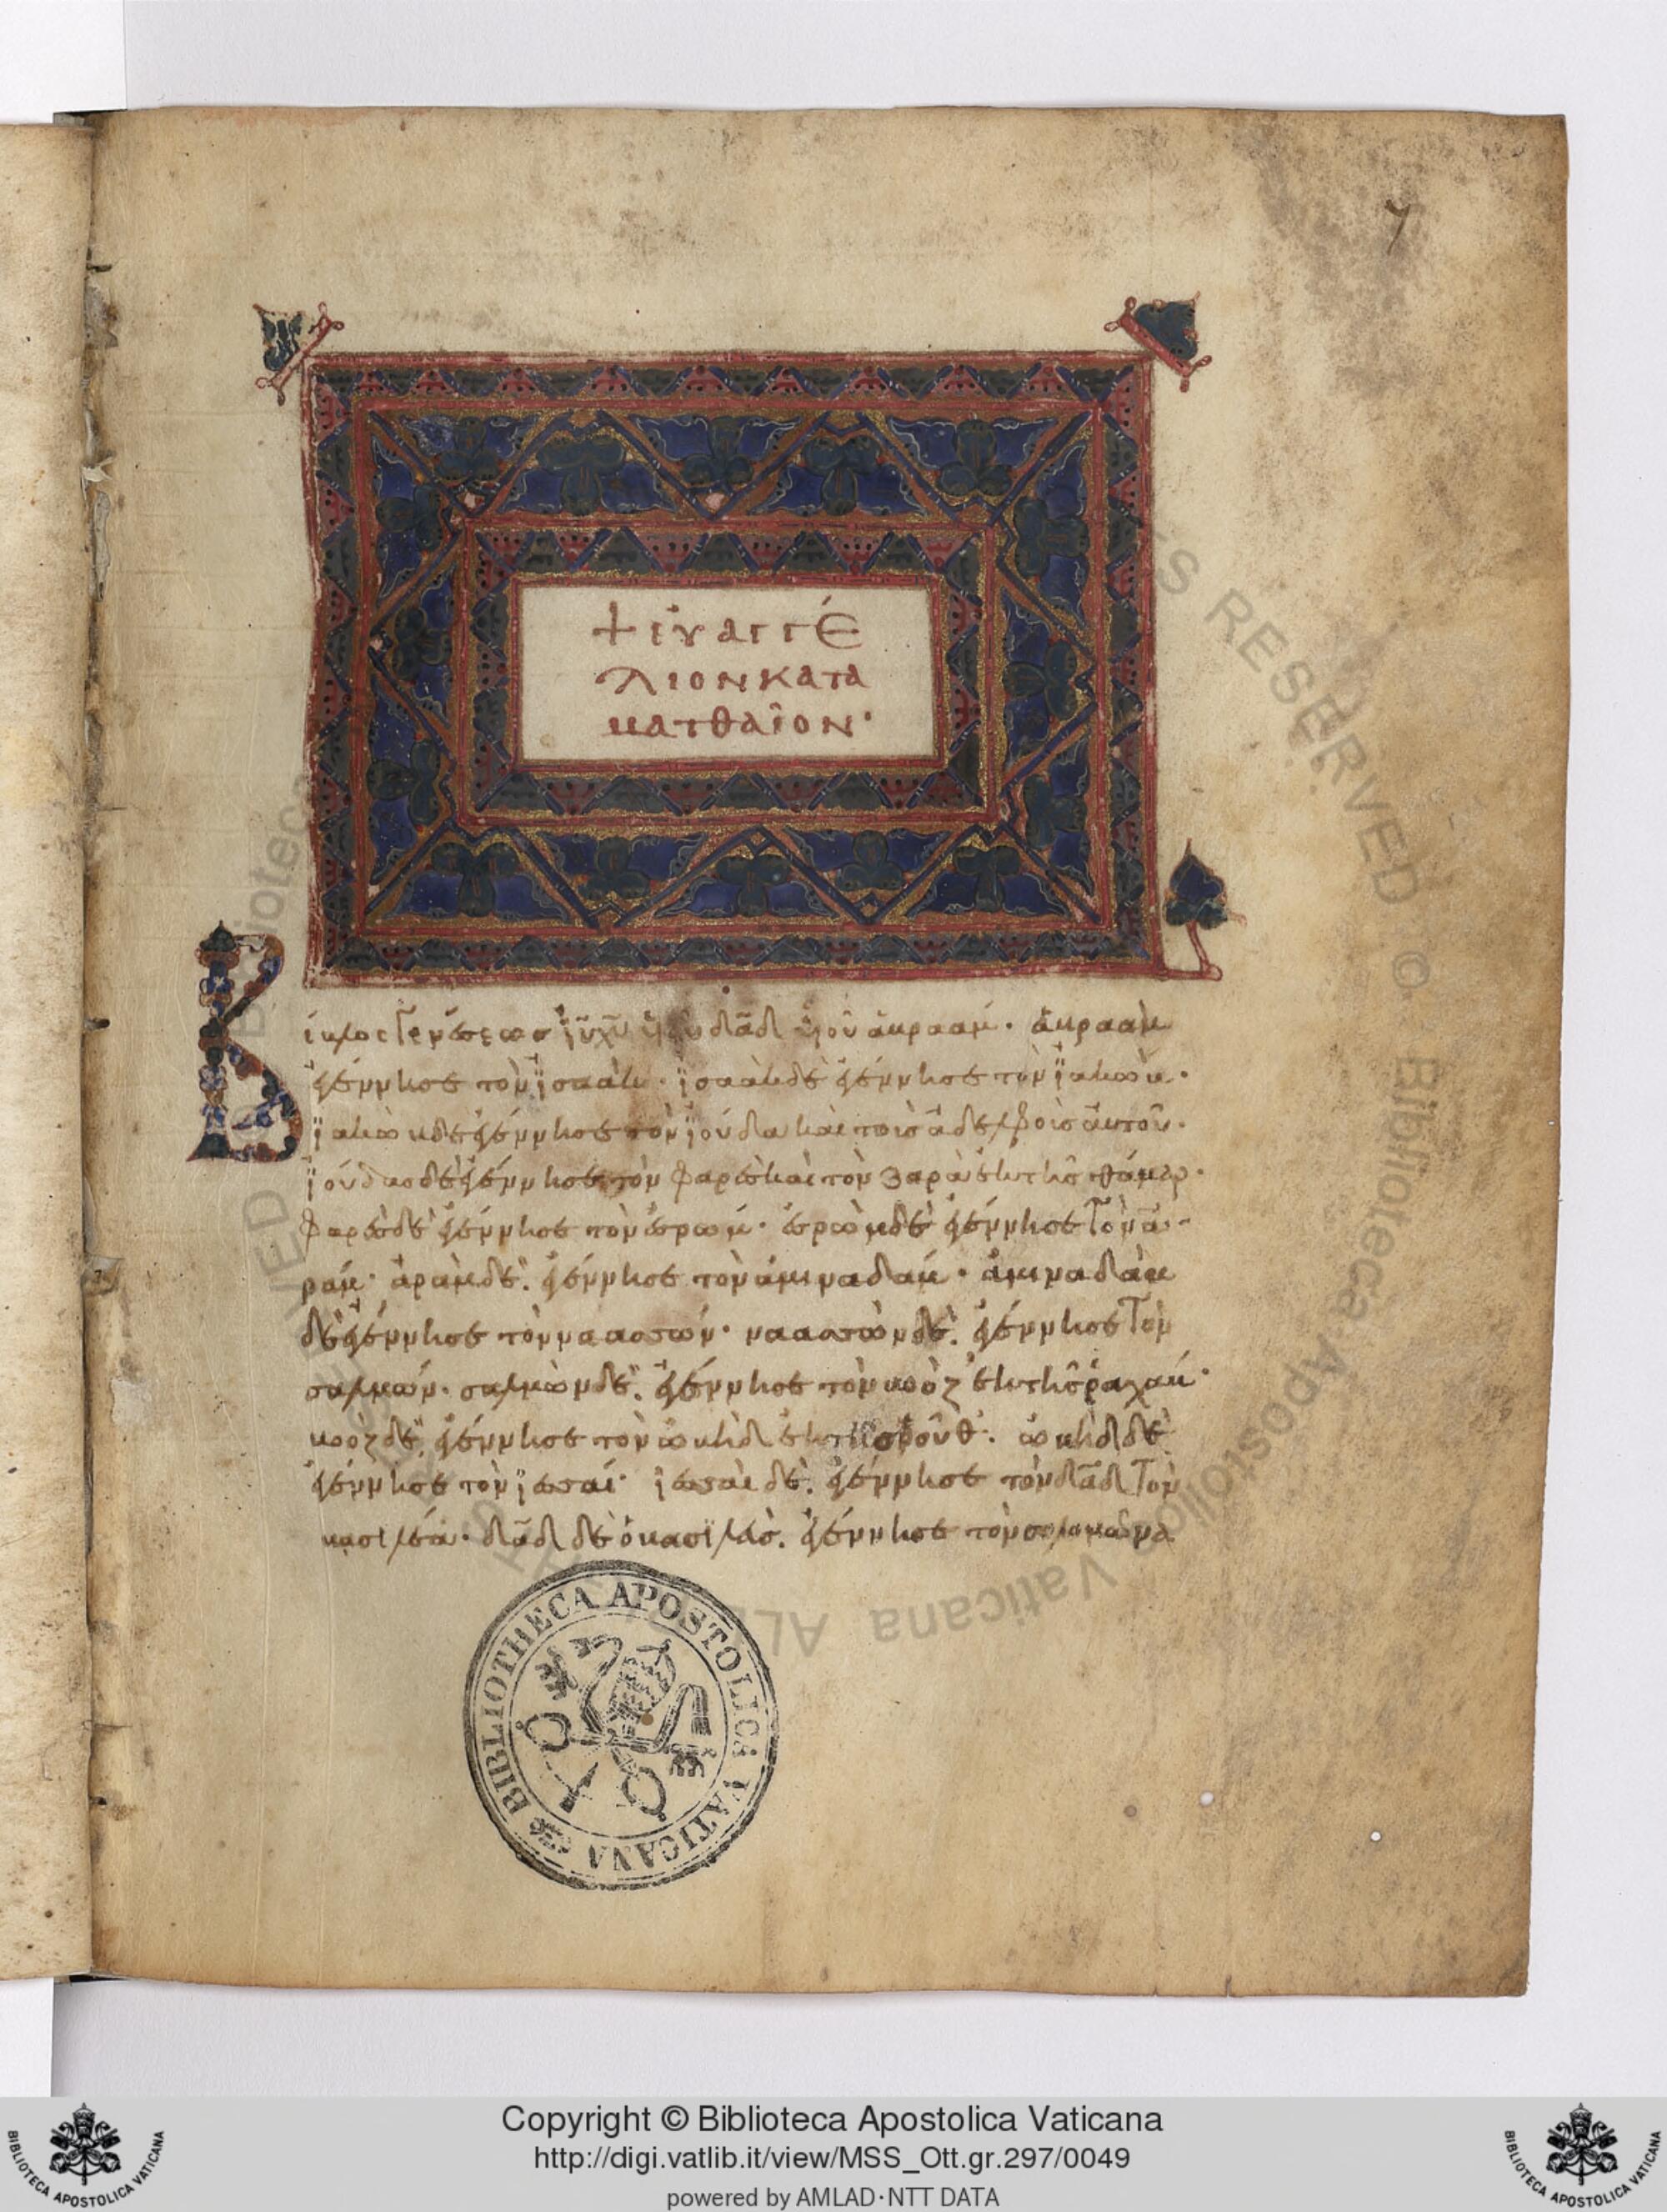 7
+ εὐαγγέ
λιον κατὰ
ματθαῖον·
Βίβλος γενέσεως ἰ̅υ̅ χ̅υ̅ υἱοῦ δα̅δ υἱοῦ ἀβραάμ· ἀβραὰμ
ἐγέννησε τὸν ἰσαάκ· ἰσαὰκ δὲ ἐγέννησε τὸν ἰακώβ·
ἰακὼβ δὲ ἐγέννησε τὸν ἰούδα καὶ τοὺς ἀδελφοὺς αὐτοῦ·
ἰούδας δὲ ἐγέννησε τὸν φαρὲς καὶ τὸν ζαρὰ ἐκ τῆς θάμαρ·
φαρὲς δὲ ἐγέννησε τὸν ἐσρώμ· ἐσρὼμ δὲ ἐγέννησε τὸν ἀ-
ράμ· ἀρὰμ δὲ ἐγέννησε τὸν ἀμιναδάμ· ἀμιναδὰμ
δὲ ἐγέννησε τὸν ναασσών· ναασσὼν δὲ ἐγέννησε τὸν
σαλμών· σαλμὼν δὲ ἐγέννησε τὸν βοὸζ ἐκ τῆς ῥαχάμ·
βοὸζ δὲ ἐγέννησε τὸν ὠβὴδ ἐκ τῆς ῥοῦθ· ὠβὴδ δὲ
ἐγέννησε τὸν ἰεσαί· ἰεσαὶ δὲ ἐγέννησε τὸν δα̅δ τὸν
βασιλέα· δα̅δ δὲ ὁ βασιλεὺς ἐγέννησε τὸν σολομῶνα
BIBLIOTHECA APOSTOLICA VATICANA
Copyright © Biblioteca Apostolica Vaticana
http://digi.vatlib.it/view/MSS_Ott.gr.297/0049
powered by AMLAD·NTT DATA
BIBLIOTECA APOSTOLICA VATICANA
BIBLIOTECA APOSTOLICA VATICANA